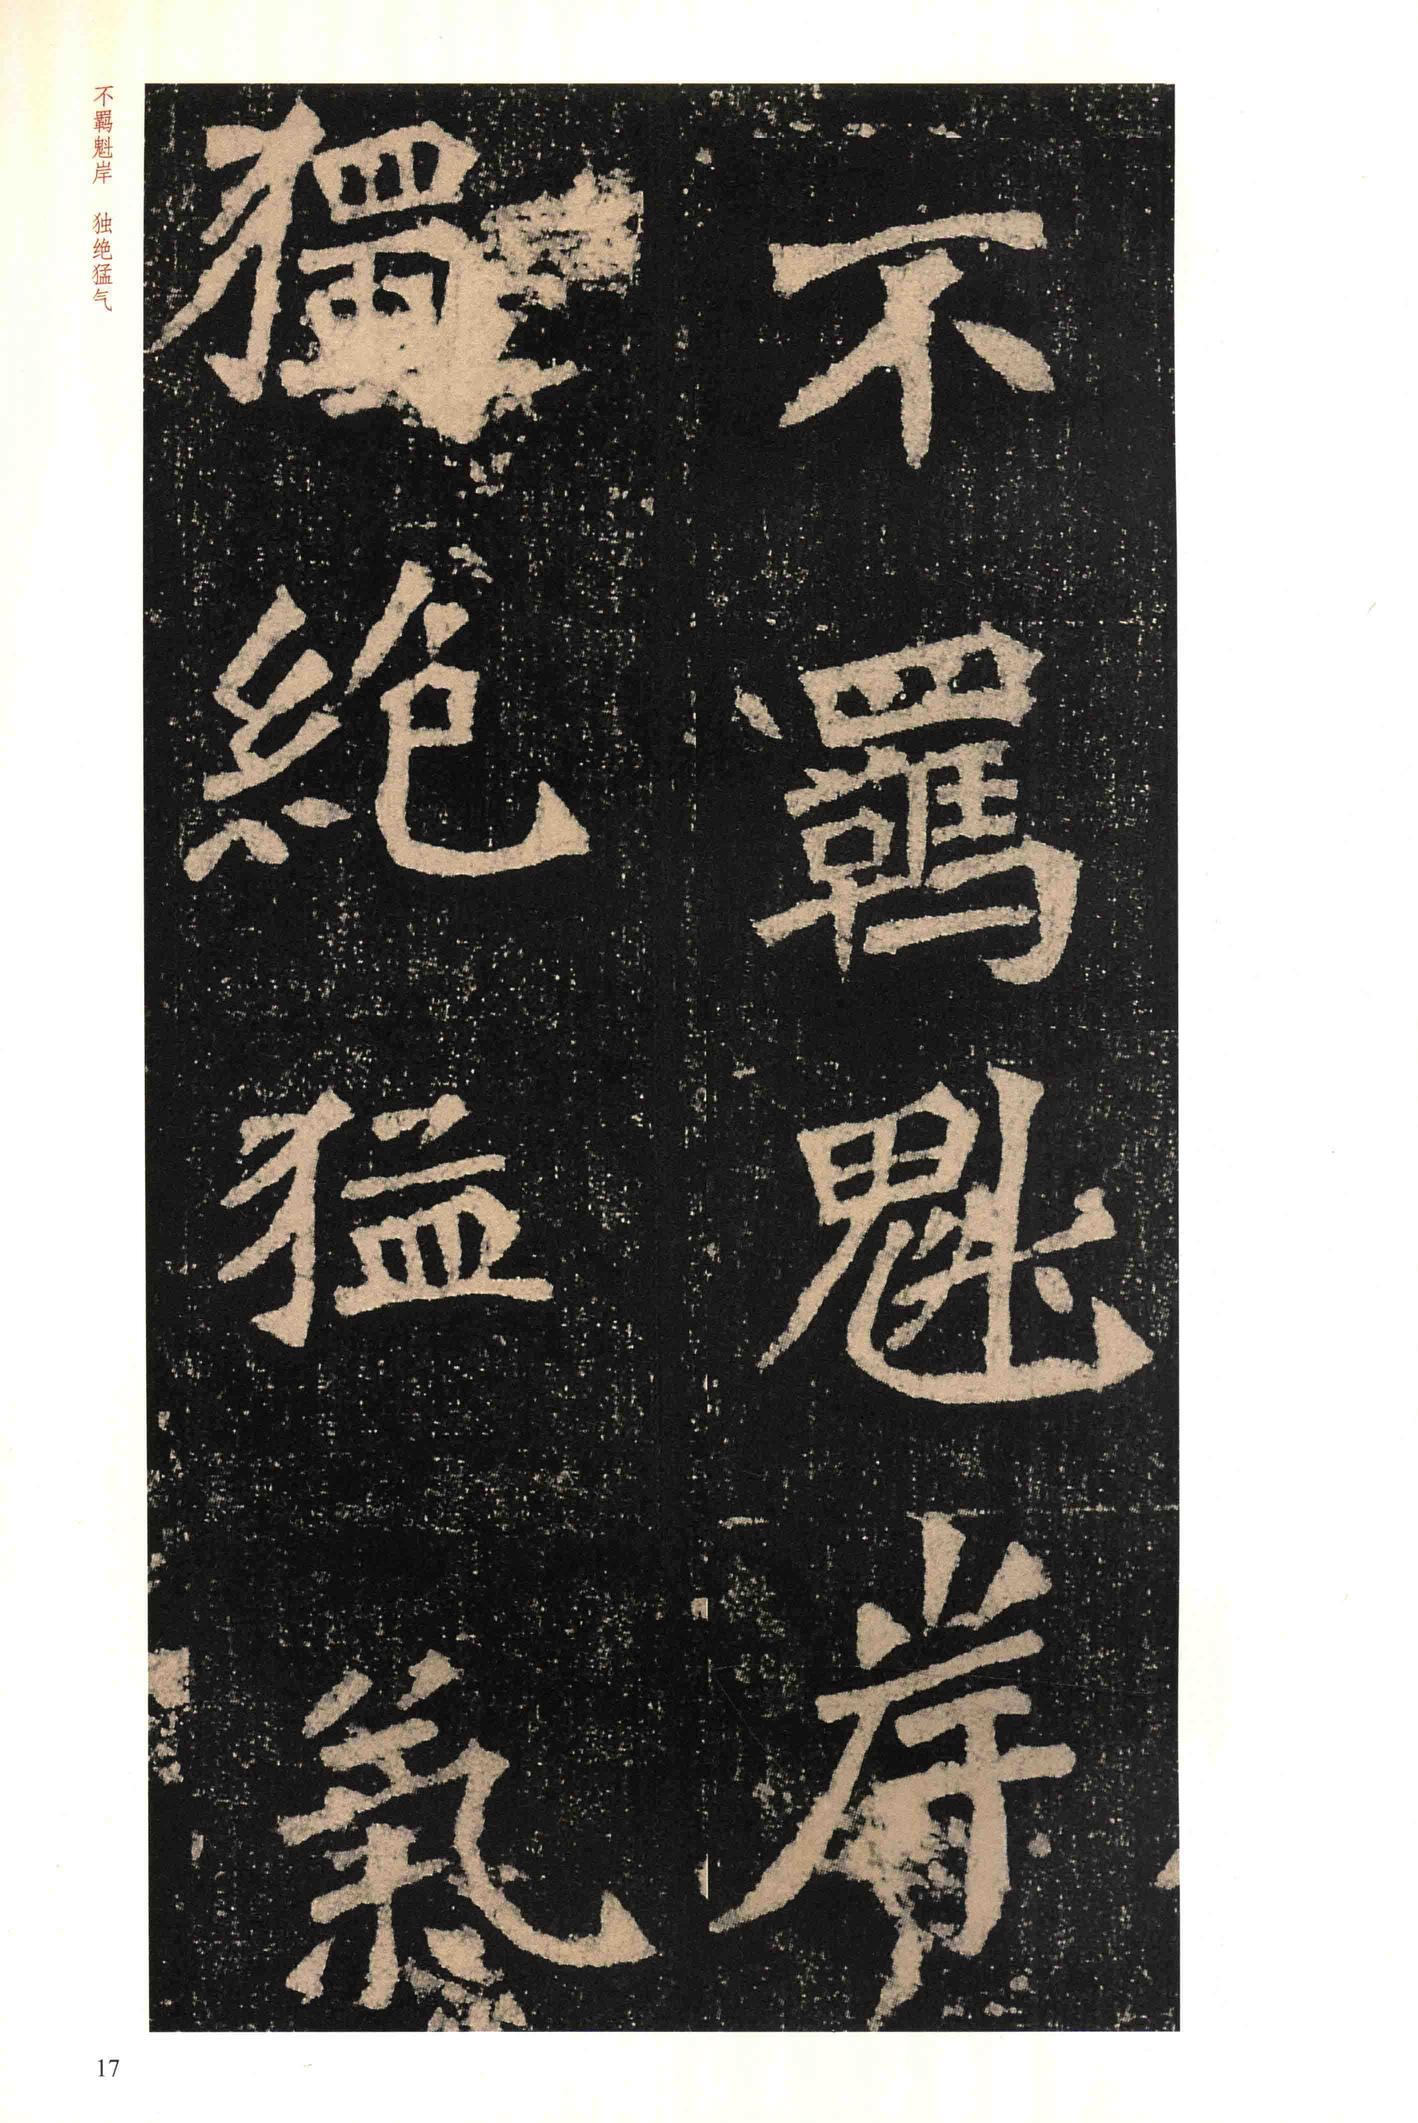 不羈魁岸
獨絕猛氣
不羁魁岸　独绝猛气
17